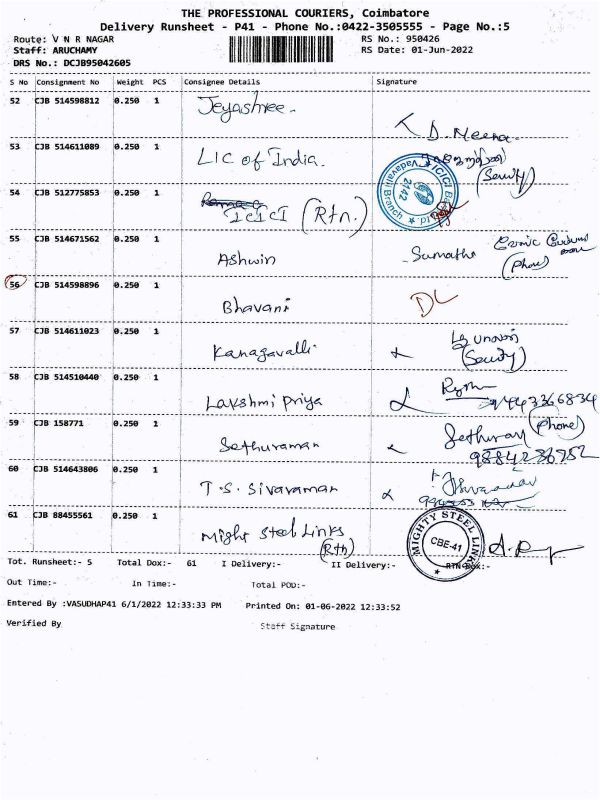 THE PROFESSIONAL COURIERS, Coimbatore
Delivery Runsheet - P41 - Phone No.:0422-3505555 - Page No.:5
Route: V N R NAGAR RS No.: 950426
Staff: ARUCHAMY RS Date: 01-Jun-2022
DRS No.: DCJB95042605
S No Consignment No Weight PCS Consignee Details Signature
52 CJB 514598812 0.250 1 Jeyashree. D. Meena
53 CJB 514611089 0.250 1 LIC of India.
54 CJB 512775853 0.250 1 ICICI (Rtn.) ICICI Vadavalli Branch 2142
55 CJB 514671562 0.250 1 Ashwin Sumathi (Phone)
56 CJB 514598896 0.250 1 Bhavani DL
57 CJB 514611023 0.250 1 Kanagavalli
58 CJB 514510440 0.250 1 Lakshmi Priya 9443366834
59 CJB 158771 0.250 1 Sethuraman Sethuram (Phone)
9884236952
60 CJB 514643806 0.250 1 T.S. Sivaraman
61 CJB 88455561 0.250 1 Might Steel Links (Rtn) MIGHTY STEEL LINK CBE-41
Tot. Runsheet:- 5 Total Dox:- 61 I Delivery:- II Delivery:- RTN Dox:-
Out Time:- In Time:- Total POD:-
Entered By :VASUDHAP41 6/1/2022 12:33:33 PM Printed On: 01-06-2022 12:33:52
Verified By Staff Signature